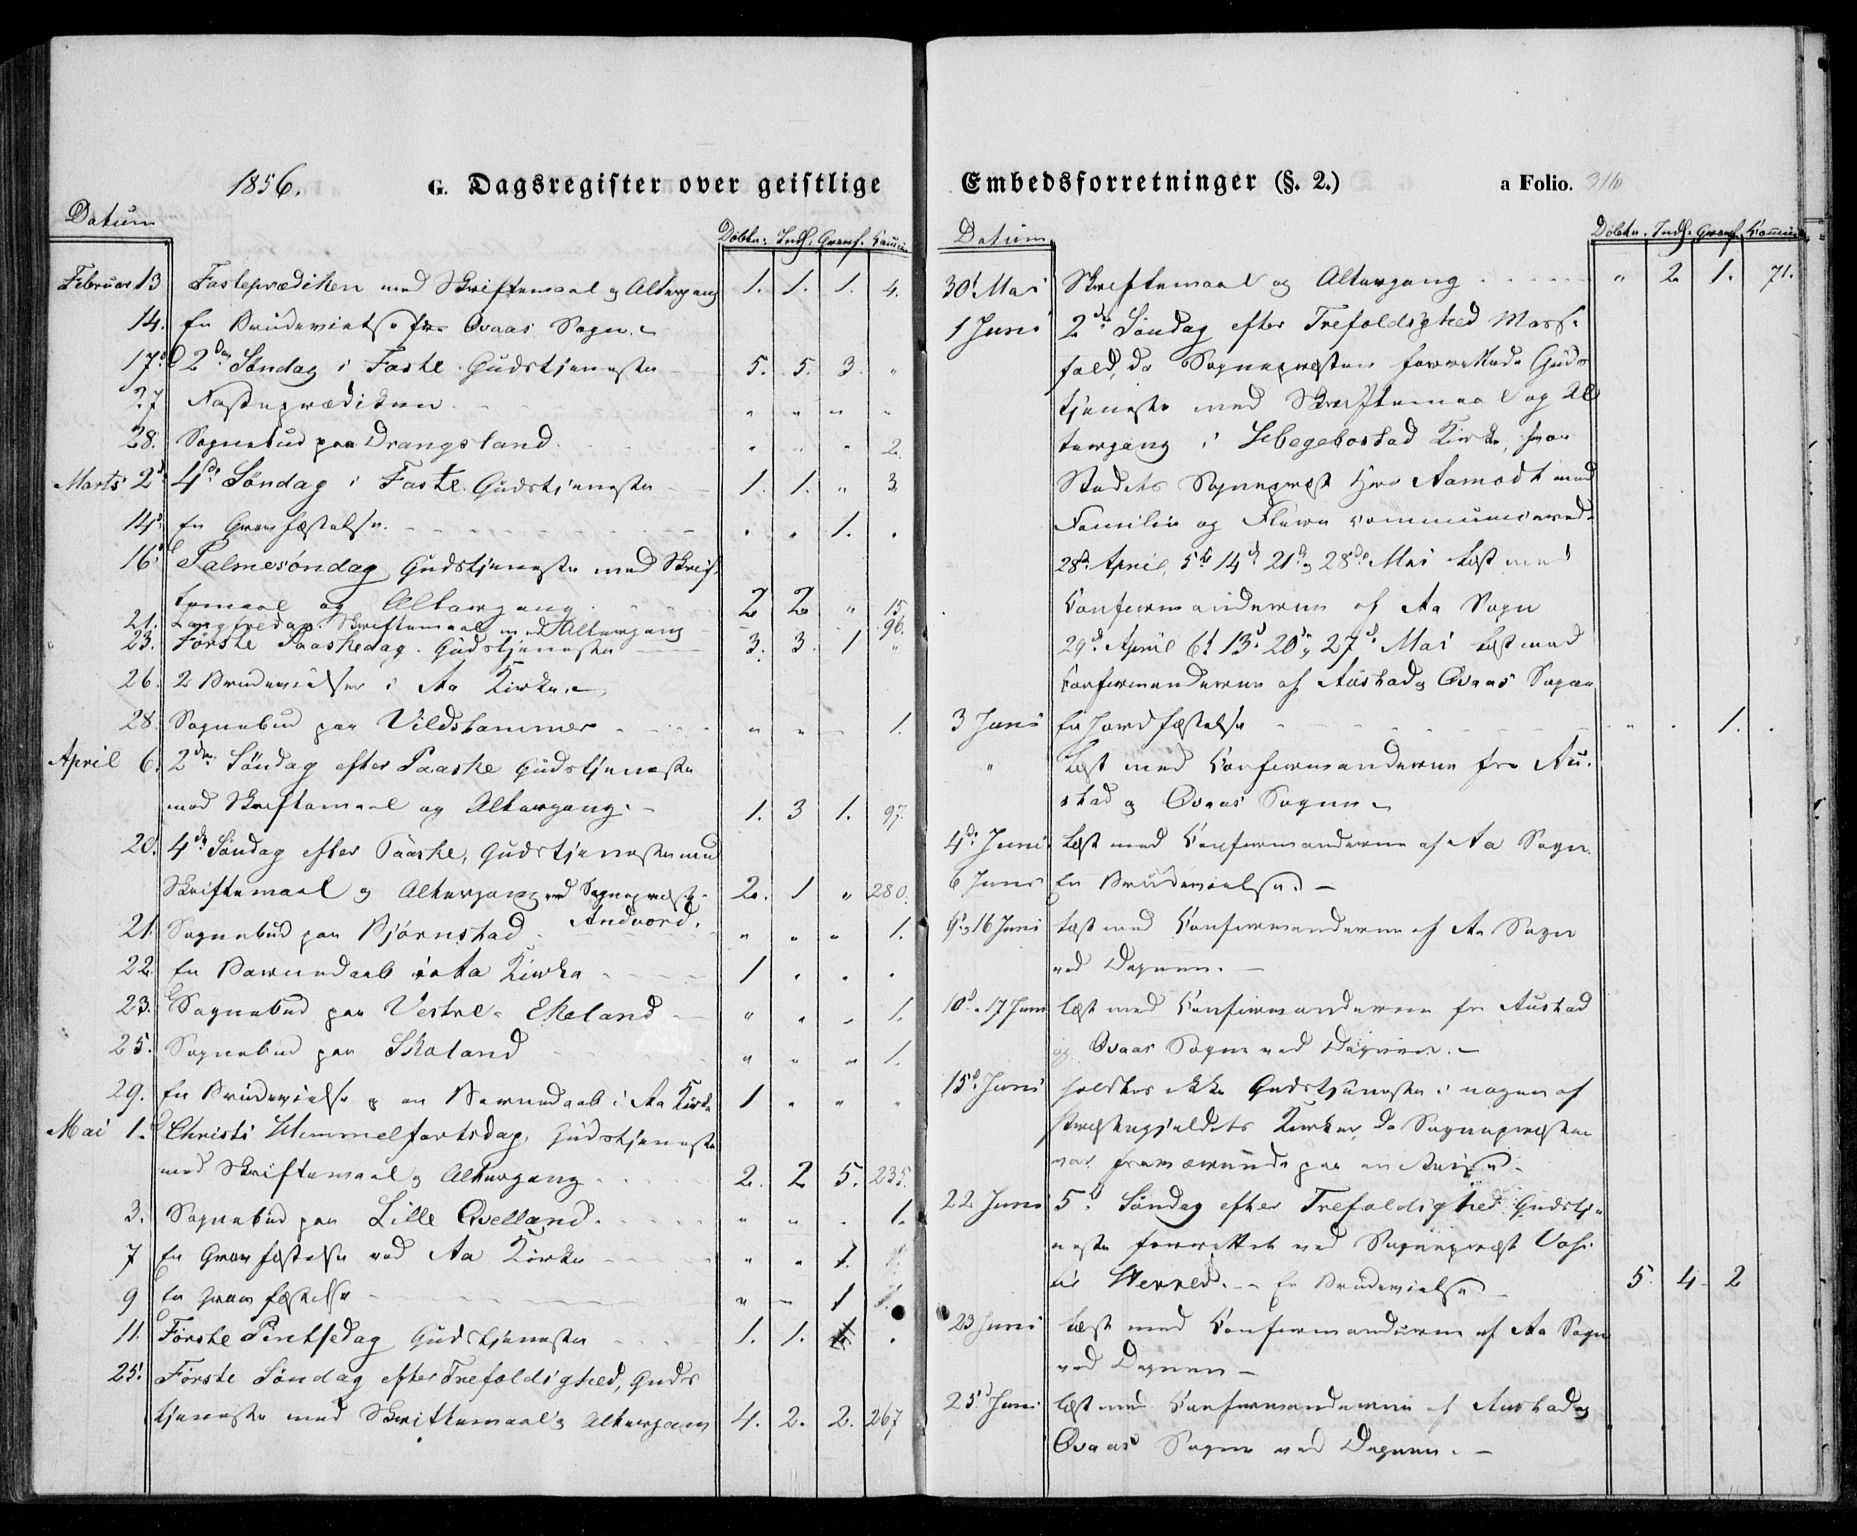 1856. G. Dagsregister over geistlige
Datum Döbte. Indf. Gravf. Comm.
Februar 13 Fasteprædiken med Skriftemaal og Altergang 1. 1. 1. 4.
14. En Brudevielse fra Qvaas Sogn.
17d. 2den Søndag i Faste Gudstjeneste 5. 5. 3. "
27 Fasteprædiken " " " "
28. Sognebud paa Drangsland " " " 2.
Marts 2d. 4de Søndag i Faste. Gudstjeneste 1. 1. " 3.
14d. En Gravfæstelse. " " 1. "
16d. Palmesøndag Gudstjeneste med Skrif-
temaal og Altergang 2 2 " 15.
21. Langfredag. Skriftemaal med Altergang 96.
23. Første Paaskedag. Gudstjeneste 3. 3. 1 "
26. 2 Brudevielser i Aa Kirke.
28. Sognebud paa Vildshammer " " 1.
April 6. 2den Søndag efter Paaske Gudstjeneste
med Skriftemaal og Altergang. 1. 3 1. 97.
20. 4de Søndag efter Paaske, Gudstjeneste med
Skriftemaal og Altergang ved Sognepræst 2. 1 " 280.
Andvord.
21. Sognebud paa Bjørnstad " " " 1.
22. En Barnedaab i Aa Kirke 1 " " "
23. Sognebud paa Vestre Ekeland " " " 1.
25. Sognebud paa Skoland " " " 1.
29. En Brudevielse og en Barnedaab i Aa Kirke 1 " " "
Mai 1. Christi Himmelfartsdag, Gudstjeneste
med Skriftemaal og Altergang 2. 2 5. 235.
3. Sognebud paa Lille Qvelland. " " " 1.
7 En Gravfæstelse ved Aa Kirke " " 1.
9 En Gravfæstelse " 1
11. Første Pintsedag Gudstjeneste 1. 1.
25. Første Søndag efter Trefoldighed, Guds
tjeneste med Skriftemaal og Altergang 4. 2. 2. 267
Embedsforretninger (§. 2.) a Folio. 316
Datum Döbte. Indf. Gravf. Comm.
30t Mai Skriftemaal og Altergang " 2 1. 71.
1 Juni 2den Søndag efter Trefoldighed Mess-
fald, da Sognepræsten forrettede Guds
tjeneste med Skriftemaal og Al
tergang i Hægebostad Kirke, hvor
Stedets Sognepræst Herr Aamodt med
Familie og Flere communicered.
28de April, 5te 14de 21de og 28de Mai læst med
Confirmanderne af Aa Sogn
29de April 6te 13de 20de og 27de Mai læst med
Confirmanderne af Austad og Qvaas Sogne
3 Juni En Jordfæstelse " " 1. "
" Læst med Confirmanderne fra Au-
stad og Qvaas Sogne
4de Juni Læst med Confirmanderne af Aa Sogn
6 Juni En Brudevielse.
9. og 16 Juni Læst med Confirmanderne af Aa Sogn
ved Degnen.
10d. og 17 Juni læst med Confirmanderne fra Austad
og Qvaas Sogne ved Degnen.
15d. Juni holdtes ikke Gudstjeneste i nogen af
Præstegjeldets Kirker, da Sognepræsten
var fraværende paa en Reise.
22 Juni 5te Søndag efter Trefoldighed Gudstje
neste forrettet ved Sognepræst
til Herred. En Brudevielse 5. 4 2
23 Juni Læst med Confirmanderne af Aa Sogn
ved Degnen
25d Juni læst med Confirmanderne af Austad og
Qvaas Sogne ved Degnen.